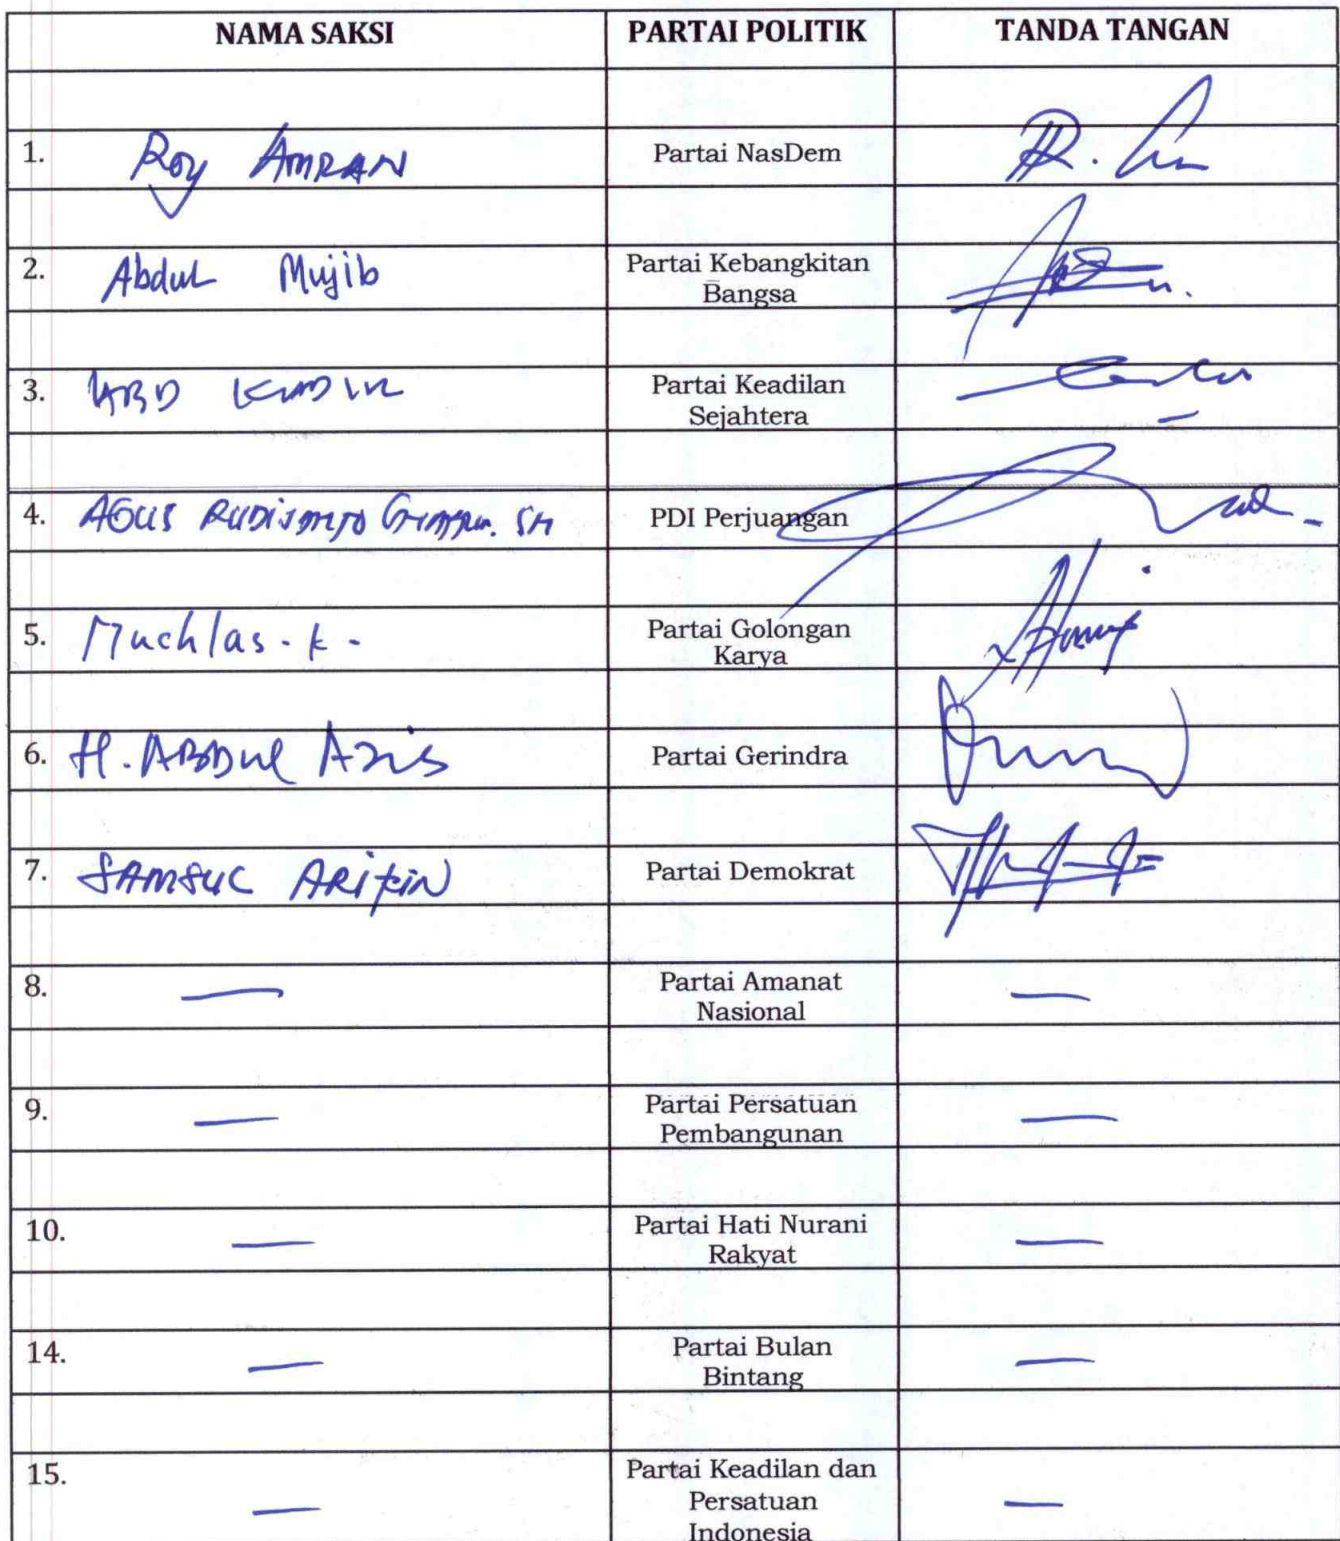 NAMA SAKSI PARTAI POLITIK TANDA TANGAN
1. Roy AMRAN Partai NasDem
2. Abdul Mujib Partai Kebangkitan
Bangsa
3. ABD Partai Keadilan
Sejahtera
4. AGUS PDI Perjuangan
5. Muchlas. k. Partai Golongan
Karya
6. H. ABDUL Azis Partai Gerindra
7. SAMSUL ARIFIN Partai Demokrat
8. — Partai Amanat —
Nasional
9. — Partai Persatuan —
Pembangunan
10. — Partai Hati Nurani —
Rakyat
14. — Partai Bulan —
Bintang
15. — Partai Keadilan dan —
Persatuan
Indonesia